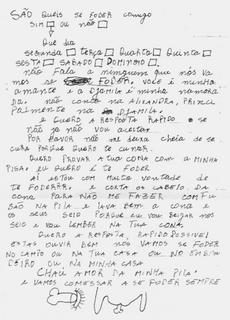 SÃO QUEIS SE FODER comigo
SIM □ OU NÃO □
Que dia
SEGUNDA □ TERÇA □ QUARTA □ QUINTA □
SESTA □ SABADO □ DOMINGO □.
NÃO FALA A NINGUEM QUE NÓS VA-
MOS SE FODER. VOCE É MINHA
AMANTE E A DJAMILA É MINHA NAMORA
DA. NÃO CONTA NA ALEXANDRA, PRINCI
PALMENTE NA DJAMILA.
E QUERO A RESPOSTA RAPIDO E SE
NÃO JÁ NÃO VOU ACEITAR.
POR FAVOR NÃO CHEIA DE SE
CUBA PORQUE QUERO TE CUNAR.
QUERO PROVAR A TUA CONA COM A MINHA
PISA, EU QUERO É TE FODER
AI ESTOU COM MUITA VONTADE DE
TE FODERRR. E CORTA OS CABELO DA
CONA PARA NÃO ME FAZER COMFU
SÃO NA PILA E LAVA BEM A CONA E
OS SEUS SEIO PORQUE EU VOU BEIJAR NOS
SEIO E VOU LEMBER NA TUA CONA.
QUERO A RESPOSTA, RAPIDO POSSIVEL
ESTAS OUVIR BEM NÓS VAMOS SE FODER
NO CAMPO OU NA TUA CASA OU NO
OU NA MINHA CASA
CHAU AMOR DA MINHA PILA!
E VAMOS COMESSAR A SE FODER SEMPRE